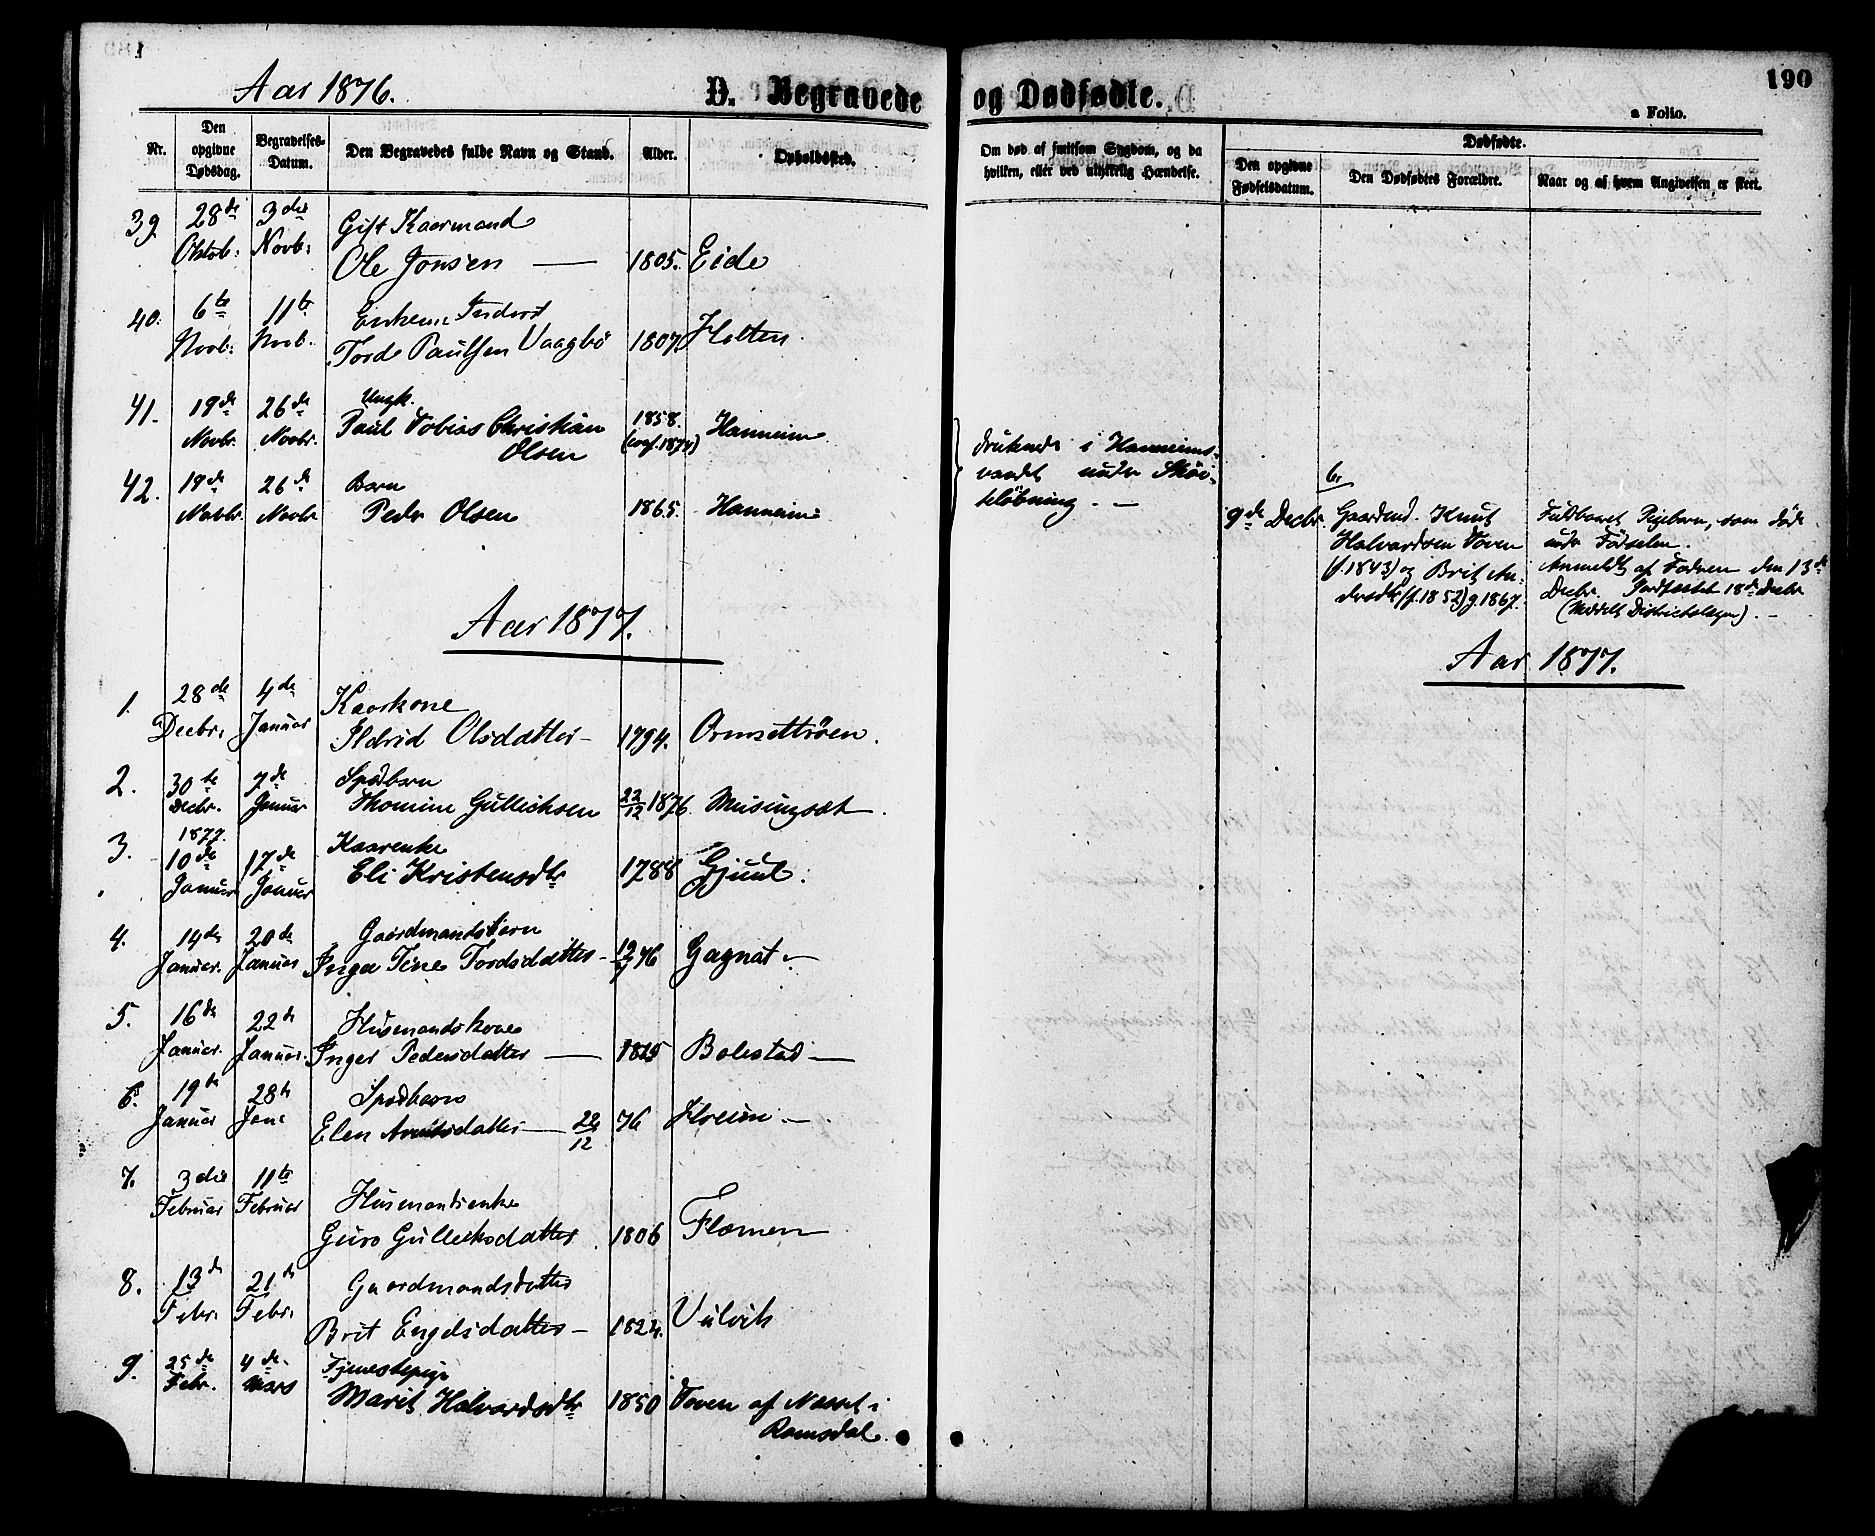 Aar 1876.
D. Begravede og Dødfødte.
190
a Folio.
Nr.
Den opgivne Dødsdag.
Begravelses-Datum.
Den Begravedes fulde Navn og Stand.
Alder.
Opholdssted.
Om død af smitsom Sygdom, og da
hvilken, eller ved ulykkelig Hændelse.
Dødfødte.
Den opgivne Fødselsdatum.
Den Dødfødtes Forældre.
Naar og af hvem Angivelsen er skeet.
39 28de 3die Gift Kaarmand
Oktob: Novb: Ole Jonsen — 1805. Eide
40. 6te 11te Enkem. Inderst
Novb: Novb. Tord Paulsen Vaagbö 1807. Holten
41. 19de 26de Ungk.
Novbr. Novbr. Paul Tobias Christian 1858. Hanneim
Olsen (conf. 1874)
42. 19de 26de Barn
Novbr. Novbr Peder Olsen 1865. Hanneim
druknede i Hanneims-
vandet under Skøi-
teløbning. —
6.
9de Decbr. Gaardmd. Knut
Halvardsen Toven
(f. 1843) og Brit An-
dersdtr (f. 1852) g. 1867.
Fuldbaaret Pigebarn, som døde
under Fødselen.
Anmeldt af Fadren den 13de
Decbr. Jordfæstet 18de Decbr
(Meddelt Districtslægen). —
Aar 1877.
Aar 1877.
1. 28de 4de Kaarkone
Decbr. Januar Ildrid Olsdatter — 1794. Ormsettrøen.
2. 30te 7de Spædbarn
Decbr. Januar Thomine Gullichsen 22/12 1876 Meisingset.
1877.
3. 10de 17de Kaarenke
Januar Januar Eli Kristensdtr 1788 Gjuul.
4. 14de 20de Gaardmandsbarn
Januar. Januar Inga Tine Tordsdatter — 76 Gagnat —
5. 16de 22de Husmandskone
Januar. Januar. Inger Pedersdatter — 1825 Bolestad —
6. 19de 28de Spædbarn
Januar Jan: Elen datter — 12 76 Hoeim —
7. 3die 11te Husmandsenke
Februar Februar Guro Gulleiksdatter 1806 Flemmen
8. 13de 21de Gaardmandsdatter
Febr. Febr. Brit Engelsdatter — 1824. Vulvik
9. 25de 4de Tjenestepige
Febr. Mars Marit Halvardsdtr 1850 Toven af Nesset i
Romsdal.